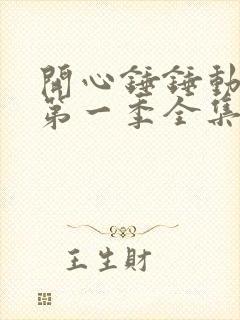 開心錘錘動
第一季全集
王生財